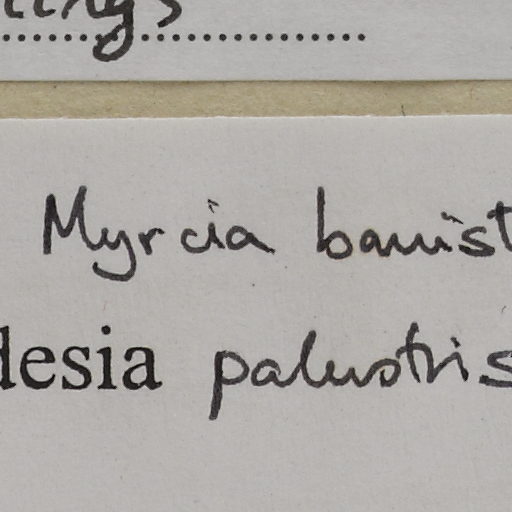 Myrcia banist
desia palustris